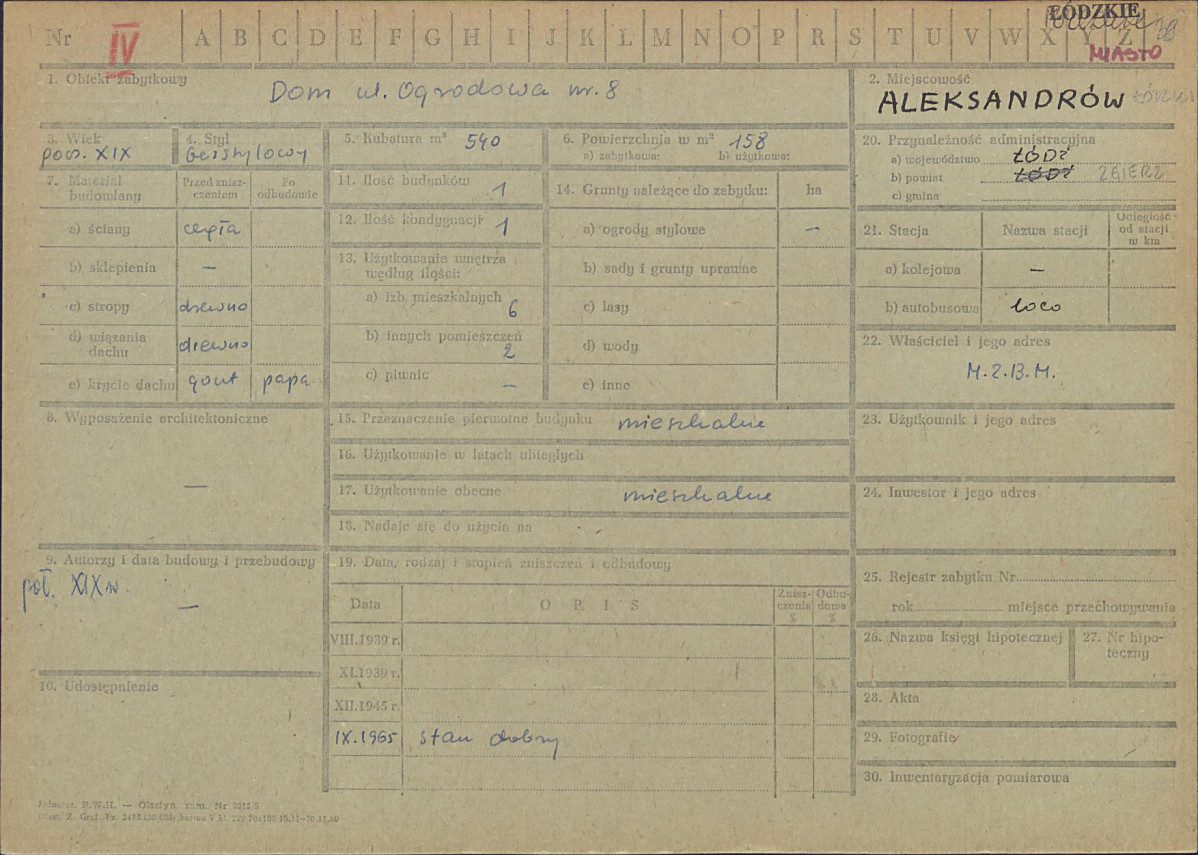 ŁÓDZKIE
Nr IV A B C D E F G H I J K L M N O P R S T U V W X Y Z
MIASTO
1. Obiekt zabytkowy
Dom ul. Ogrodowa nr. 8
2. Miejscowość
ALEKSANDRÓW ŁÓDZKI
3. Wiek
pocz. XIX
4. Styl
bezstylowy
5. Kubatura m³ 540
6. Powierzchnia w m² 158
a) zabytkowa: b) użytkowa:
7. Materiał budowlany
Przed zniszczeniem
Po odbudowie
a) ściany cegła
b) sklepienia —
c) stropy drewno
d) wiązania dachu drewno
e) krycie dachu gont papa
8. Wyposażenie architektoniczne
—
9. Autorzy i data budowy i przebudowy
poł. XIX w.
—
10. Udostępnienie
11. Ilość budynków 1
12. Ilość kondygnacji 1
13. Użytkowanie wnętrza
według ilości:
a) izb mieszkalnych 6
b) innych pomieszczeń 2
c) piwnic —
14. Grunty należące do zabytku: ha
a) ogrody stylowe —
b) sady i grunty uprawne
c) lasy
d) wody
e) inne
15. Przeznaczenie pierwotne budynku mieszkalne
16. Użytkowanie w latach ubiegłych
17. Użytkowanie obecne mieszkalne
18. Nadaje się do użycia na
19. Data, rodzaj i stopień zniszczeń i odbudowy
Data O P I S Zniszczenia % Odbudowa %
VIII.1939 r.
XI.1939 r.
XII.1945 r.
IX.1965 stan dobry
20. Przynależność administracyjna
a) województwo ŁÓDŹ
b) powiat ŁÓDŹ ZGIERZ
c) gmina
21. Stacja Nazwa stacji Odległość od stacji w km
a) kolejowa —
b) autobusowa loco
22. Właściciel i jego adres
M.Z.B.M.
23. Użytkownik i jego adres
24. Inwestor i jego adres
25. Rejestr zabytku Nr
rok miejsce przechowywania
26. Nazwa księgi hipotecznej
27. Nr hipoteczny
28. Akta
29. Fotografie
30. Inwentaryzacja pomiarowa
P.W.H. — Olsztyn, zam. Nr